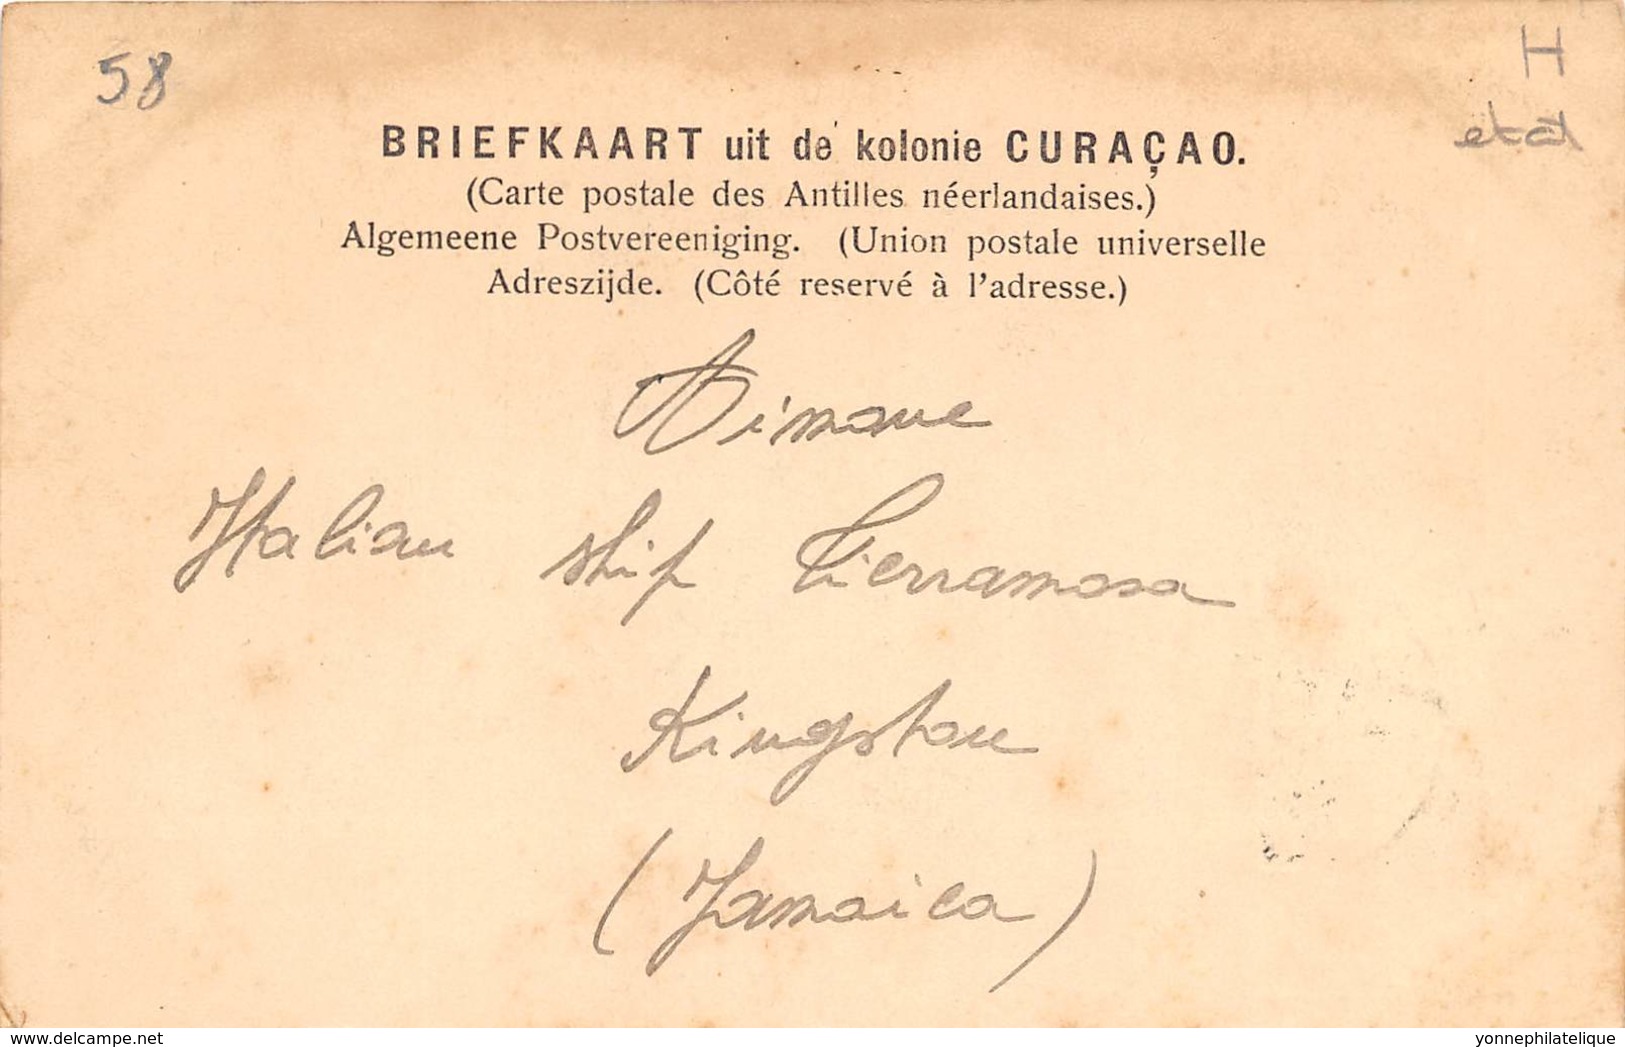 58
H
etat
BRIEFKAART uit de kolonie CURAÇAO.
(Carte postale des Antilles néerlandaises.)
Algemeene Postvereeniging. (Union postale universelle
Adreszijde. (Côté reservé à l'adresse.)
Italian ship
Kingston
(Jamaica)
delcampe.net
yonnephilatelique